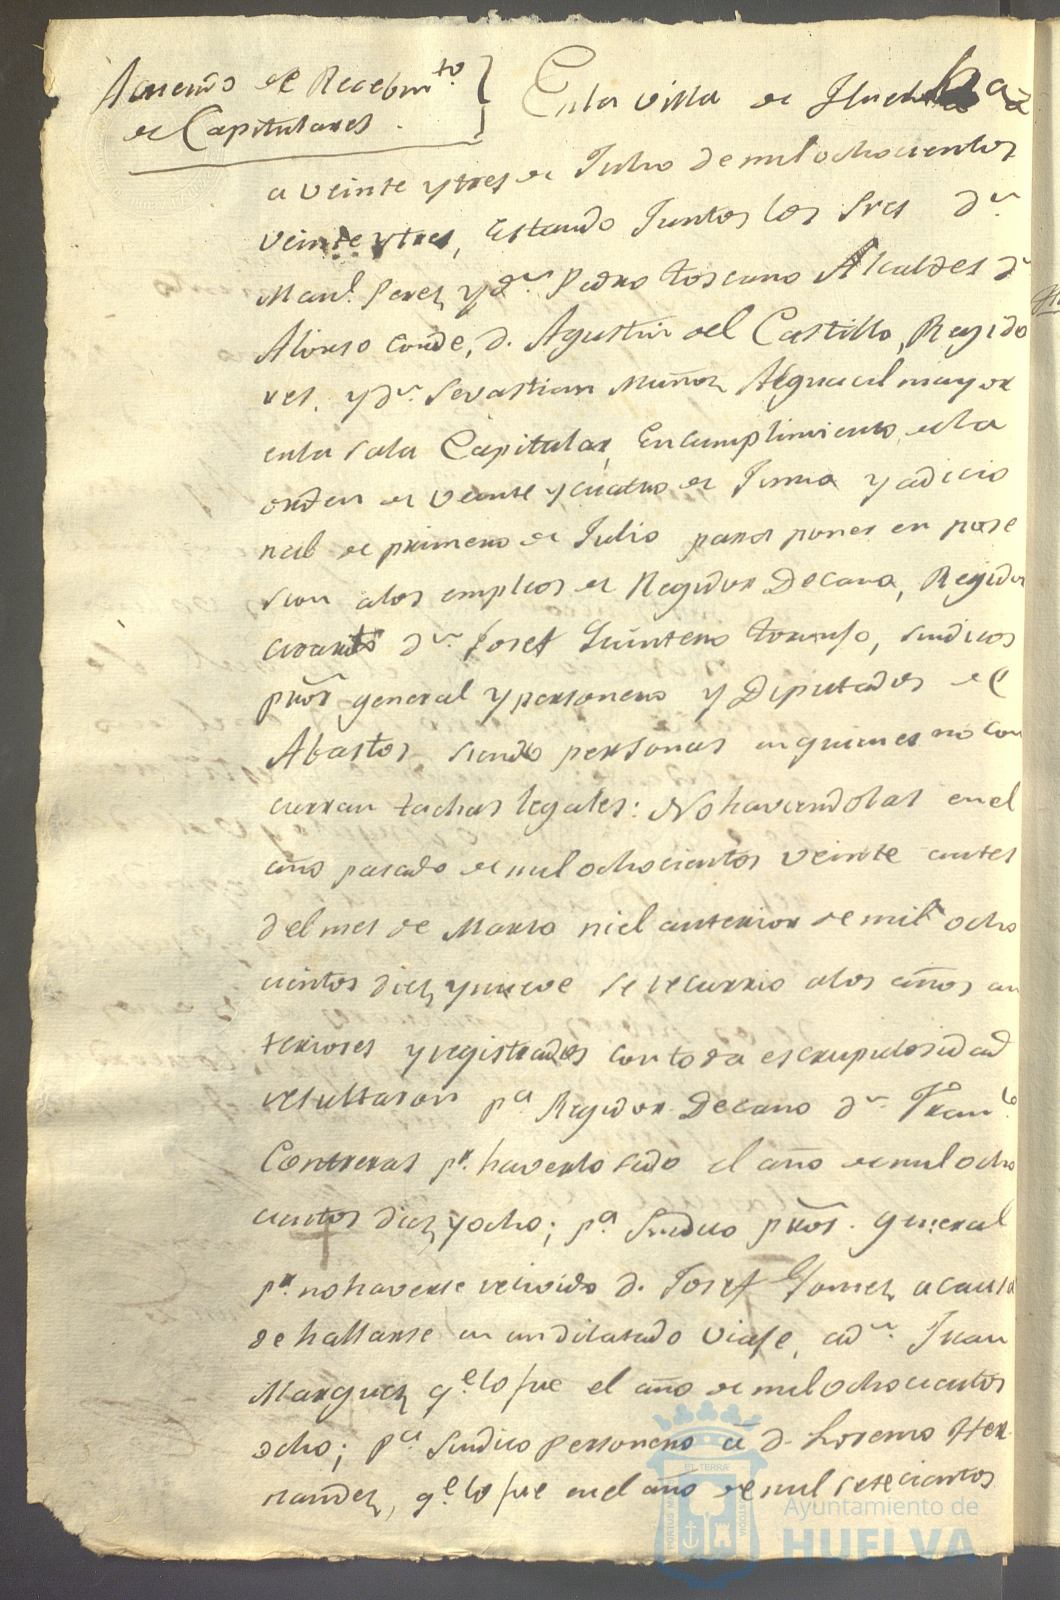 Acuerdo de Recebim.to
de Capitulares.
En la villa de Huelba a
a veinte y tres de Julio de mil ochocientos
veinte y tres, Estando Juntos los Sres d.n
Man.l Perez y d.n Pedro Toscano Alcaldes d.n
Alonso Conde, d. Agustin del Castillo, Regido
res, y d.n Sevastian Muñoz Alguacil mayor
en la sala Capitular, En cumplimiento de la
orden de veinte y cuatro de Junio y adicio
nal de primero de Julio para poner en pose
sion a los empleos de Regidor Decano, Regidor
cuarto d.n Josef Quintero, Sindicos
pror general y personero y Diputados del
Abastos siendo personas en quienes no con
curran tachas legales: No haviendolas en el
año pasado de mil ochocientos veinte antes
del mes de Marzo ni el anterior de mil ocho
cientos diez y nueve se recurrio a los años an
teriores y registrados con toda escrupulosidad
resultaron p.a Regidor Decano d.n Fran.co
Contreras p.r haverlo sido el año de mil ocho
cientos diez y ocho; p.a Sindico pror. general
p.r no haverse recivido d. Josef Gomez a causa
de hallarse en un dilatado viaje, a d.n Juan
Marquez q.e lo fue el año de mil ochocientos
ocho; p.a Sindico Personero a d. Lorenzo Her
nandez, q.e lo fue en el año de mil setecientos
PORTUS MARIS ET TERRÆ CUSTODIA
Ayuntamiento de
HUELVA